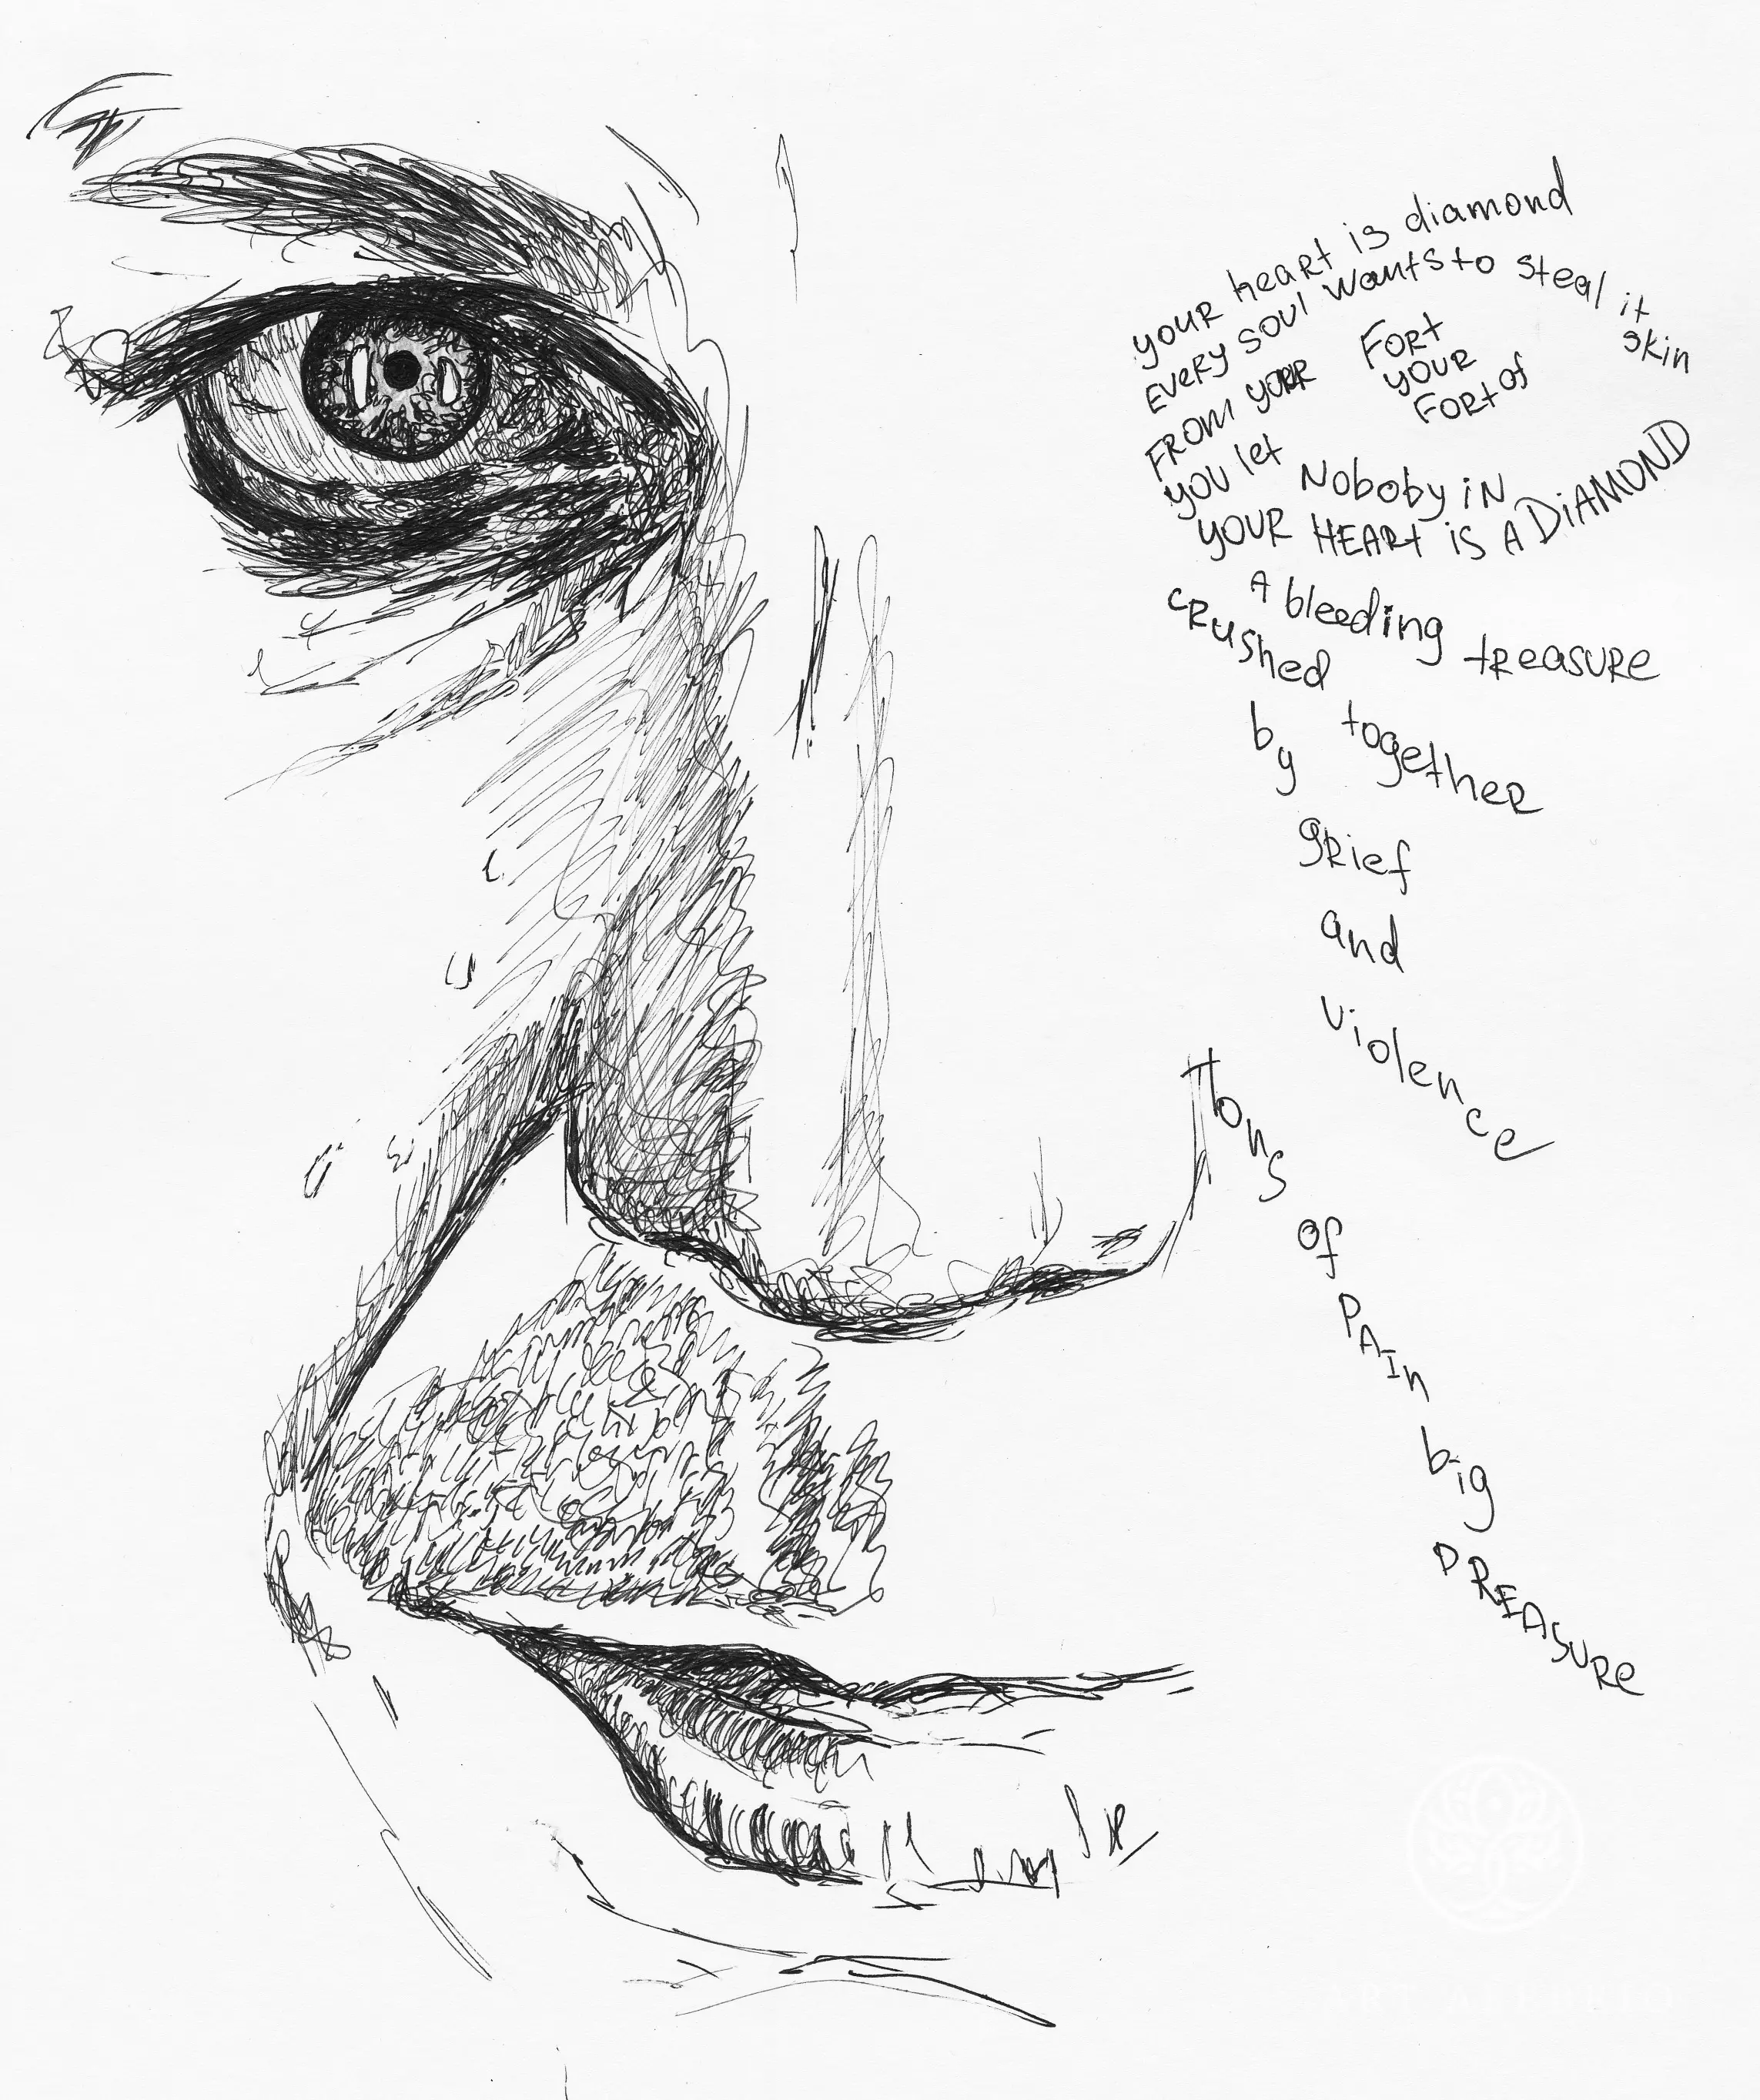 your heart is diamond
every soul wants to steal it
from your Fort skin
your
Fort of
you let Noboby in
YOUR HEARt iS A DiAMOND
A bleeding treasure
crushed together
by
grief
and
violence
tons
of
PAIn
big
PREASURe